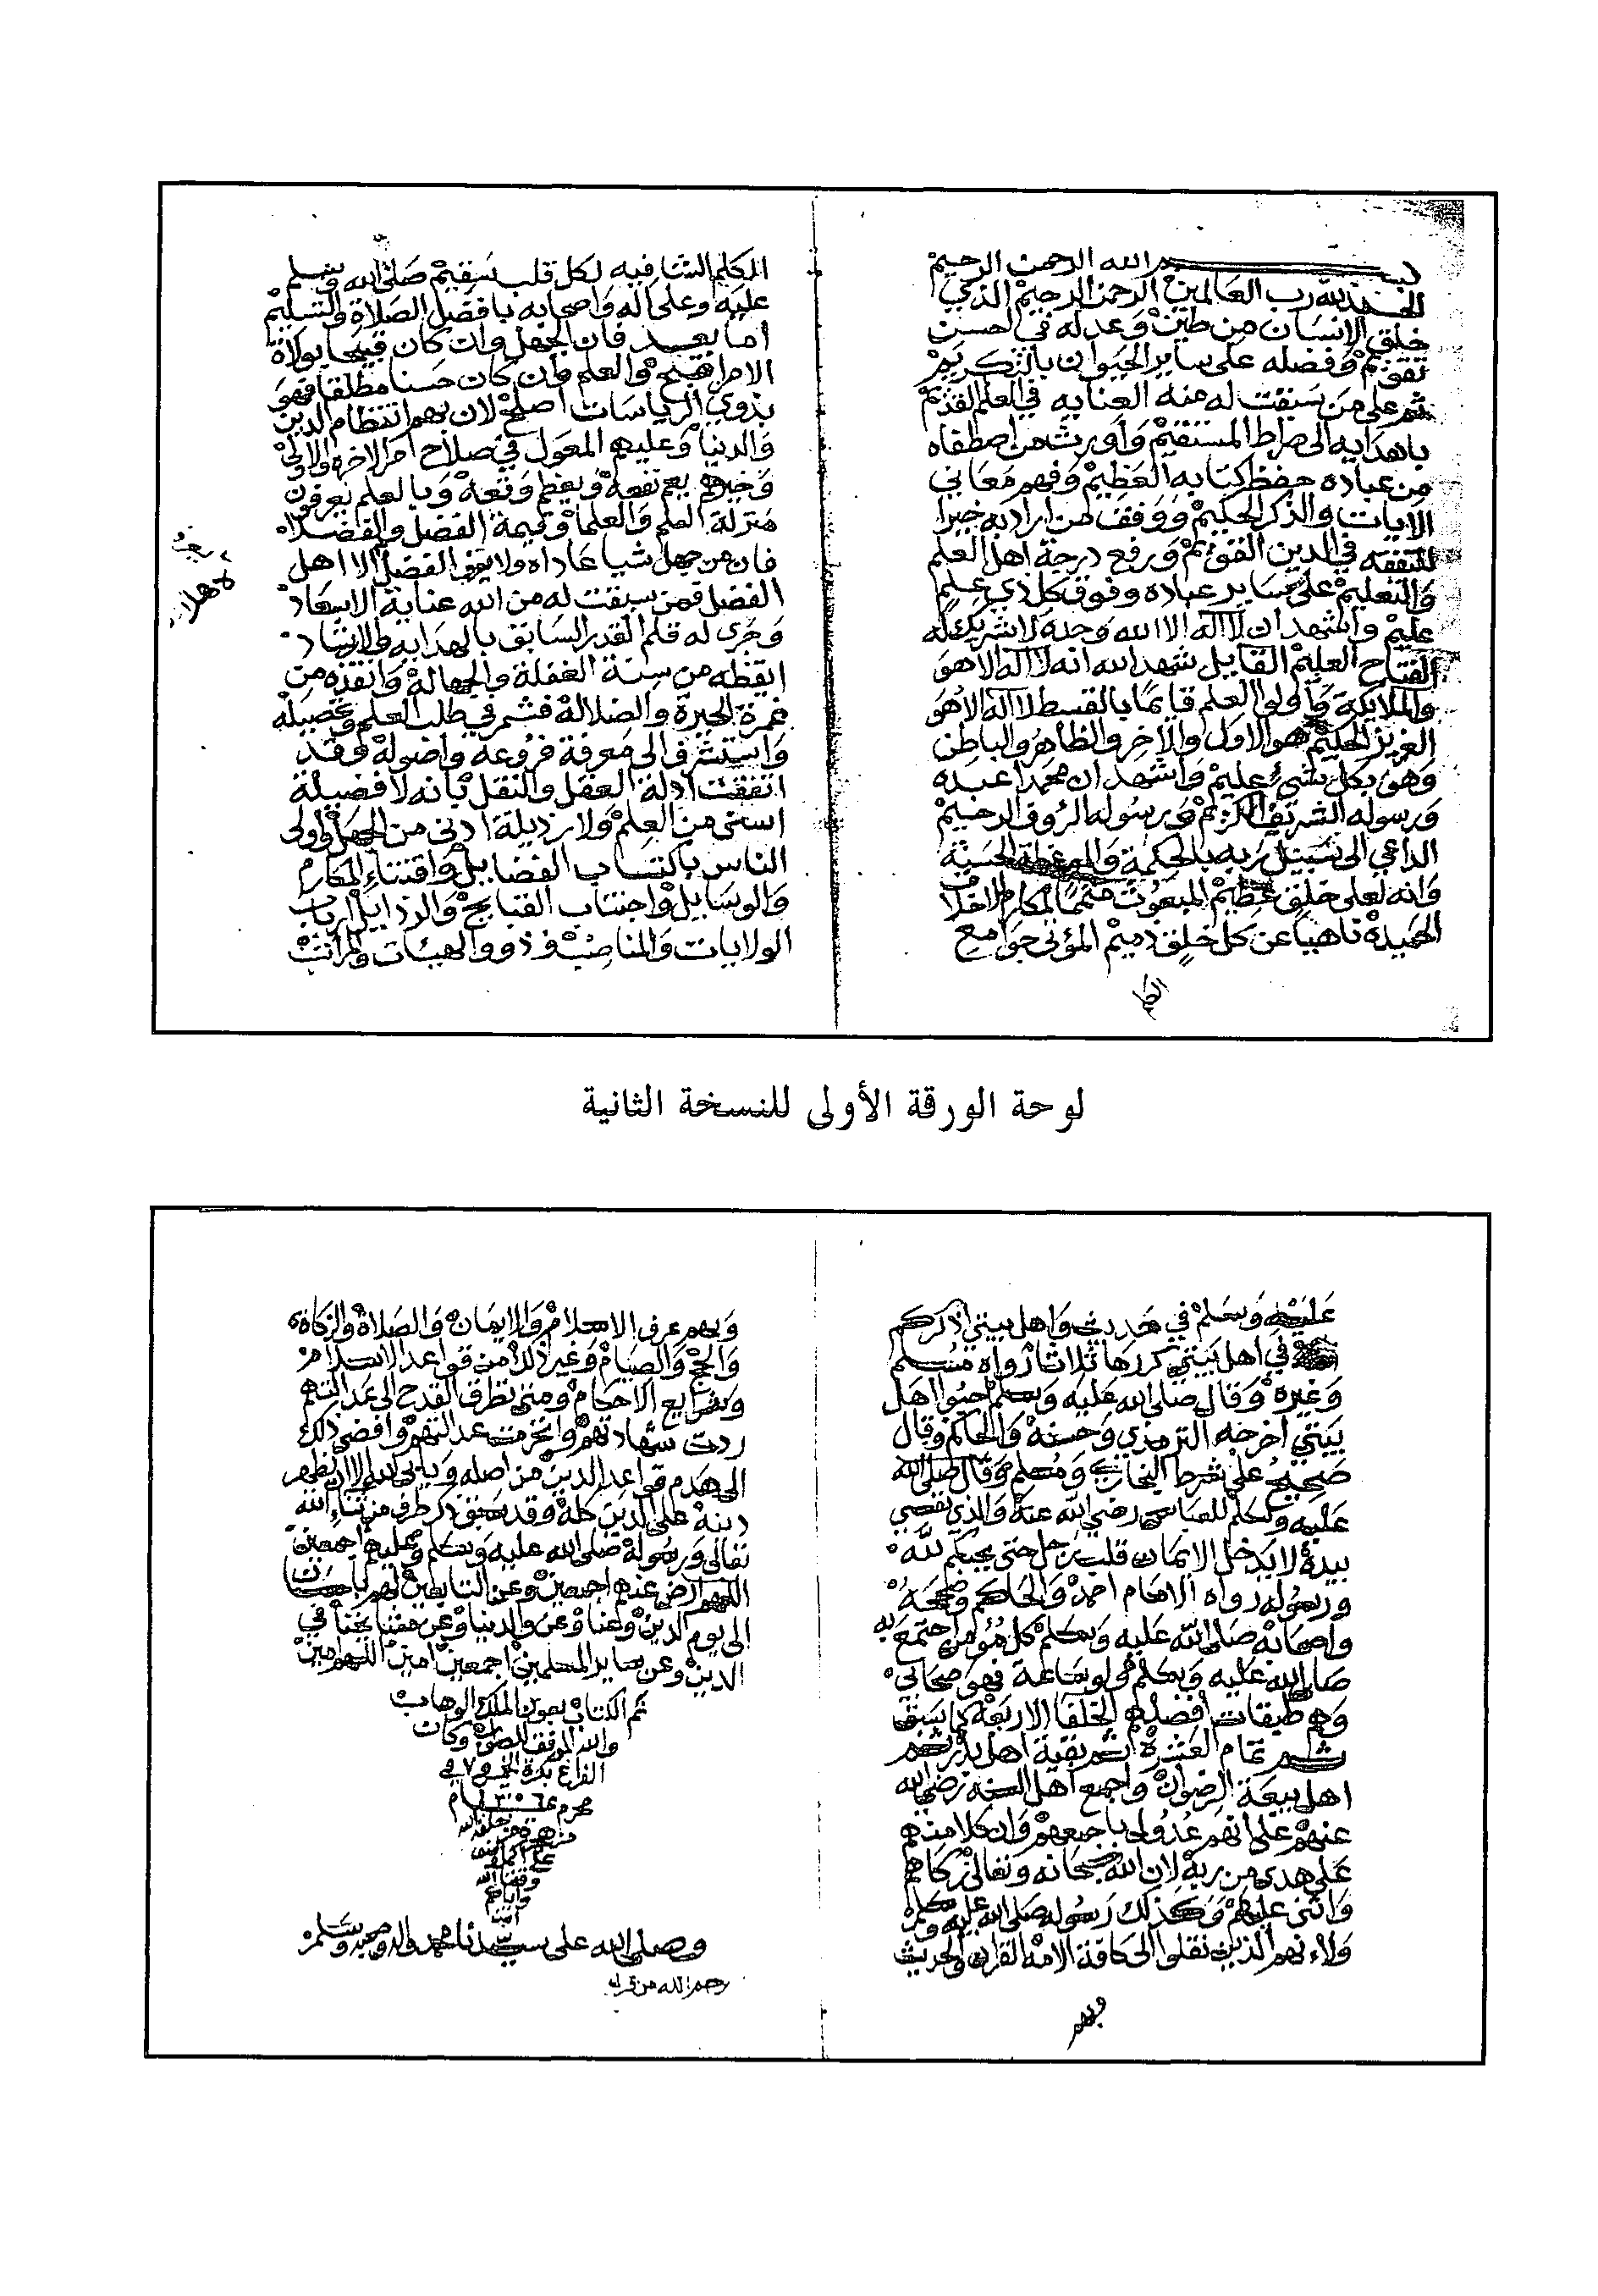 بسم الله الرحمن الرحيم
الحمد لله رب العالمين الرحمن الرحيم الذي
خلق الإنسان من طين وعدله في احسن
تقويم وفضله على ساير الحيوان بالتكريم
ثم على من سبقت له منه العنايه في العلم القديم
باهدايه الى صراط المستقيم وأورث من اصطفاه
من عباده حفظ كتابه العظيم وفهم معاني
الايات والذكر الحكيم ووفق من اراد به خيرا
للتفقه في الدين القويم ورفع درجة اهل العلم
والتعليم على ساير عباده وفوق كل ذي علم
عليم واشهد ان لا اله الا الله وحده لا شريك له
الفتاح العليم القايل شهد الله انه لا اله الا هو
والملايكة وأولوا العلم قايمًا بالقسط لا اله الا هو
العزيز الحكيم هو الاول والاخر والظاهر والباطن
وهو بكل شيء عليم واشهد ان محمدا عبده
ورسوله الشريف الكريم ورسوله الرؤف الرحيم
الداعي الى سبيل ربه بالحكمة والموعظة الحسنة
وانه لعلى خلق عظيم المبعوث متممًا لمكارم الاخلاق
الحميدة ناهيا عن كل خلق ذميم المؤتى جوامع
الكلم
الكلم الشافيه لكل قلب سقيم صلى الله وسلم
عليه وعلى اله واصحابه بافضل الصلاة والتسليم
اما بعد فان الجهل وان كان قبيحا بولاة
الامر اقبح والعلم وان كان حسنا مطلقا فهو
بذوي الرياسات اصلح لان بهم انتظام الدين
والدنيا وعليهم المعول في صلاح امر الاخرة والاولى
وخيرهم يعم نفعه ويعظم وقعه وبالعلم يعرفون
منزلة العلم والعلما وقيمة الفضل والفضلاء
فان من جهل شيا عاداه ولا يعرف الفضل الا اهل
الفضل فمن سبقت له من الله عناية الاسعاد
وجرى له قلم القدر السابق بالهدايه والارشاد
ايقظه من سنة الغفلة والجهالة وانقذه من
غمرة الحيرة والضلالة فشمر في طلب العلم وتحصيله
واستشرف الى معرفة فروعه واصوله وقد
اتفقت ادلة العقل والنقل بانه لا فضيلة
اسنى من العلم ولا رذيلة ادنى من الجهل واولى
الناس باكتساب الفضايل واقتناء المكارم
والوسايل واجتناب القبايح والرذايل ارباب
الولايات والمناصب وذووا الهيئات والمراتب
لوحة الورقة الأولى للنسخة الثانية
عليه وسلم في حديث واهل بيتي اذكركم
في اهل بيتي كررها ثلاثا رواه مسلم
وغيره وقال صلى الله عليه وسلم احبوا اهل
بيتي اخرجه الترمذي وحسنه والحاكم وقال
صحيح على شرط البخاري ومسلم وقال صلى الله
عليه وسلم للعباس رضي الله عنه والذي نفسي
بيده لا يدخل الايمان قلب رجل حتى يحبكم لله
ورسوله رواه الامام احمد والحاكم وصححه
واصحابه صلى الله عليه وسلم كل مؤمن اجتمع به
صلى الله عليه وسلم ولو ساعة فهو صحابي
وهم طبقات افضلهم الخلفا الاربعة كما سبق
ثم تمام العشرة ثم بقية اهل بدر ثم
اهل بيعة الرضوان واجمع اهل السنة رضي الله
عنهم على انهم عدول باجمعهم وان كلا منهم
على هدى من ربه لان الله سبحانه وتعالى زكاهم
واثنى عليهم وكذلك رسوله صلى الله عليه وسلم
ولانهم الذين نقلوا الى كافة الامة القران والحديث
وبهم
وبهم عرف الاسلام والايمان والصلاة والزكاة
والحج والصيام وغير ذلك من قواعد الاسلام
وشرايع الاحكام ومتى تطرق القدح الى عدالتهم
ردت شهادتهم وانخرمت عدالتهم وافضى ذلك
الى هدم قواعد الدين من اصله ويابى الله الا ان يظهر
دينه على الدين كله وقد سبق ذكر طرف من ثناء الله
تعالى ورسوله صلى الله عليه وسلم وعليهم اجمعين
اللهم ارض عنهم اجمعين وعن التابعين لهم باحسان
الى يوم الدين وعنا وعن والدينا وعن مشايخنا في
الدين وعن ساير المسلمين اجمعين امين اللهم امين
تم الكتاب بعون الملك الوهاب
والله الموفق للصواب وكان
الفراغ بكرة
محرم
وصلى الله على سيدنا محمد واله وصحبه وسلم
رحم الله من قراه